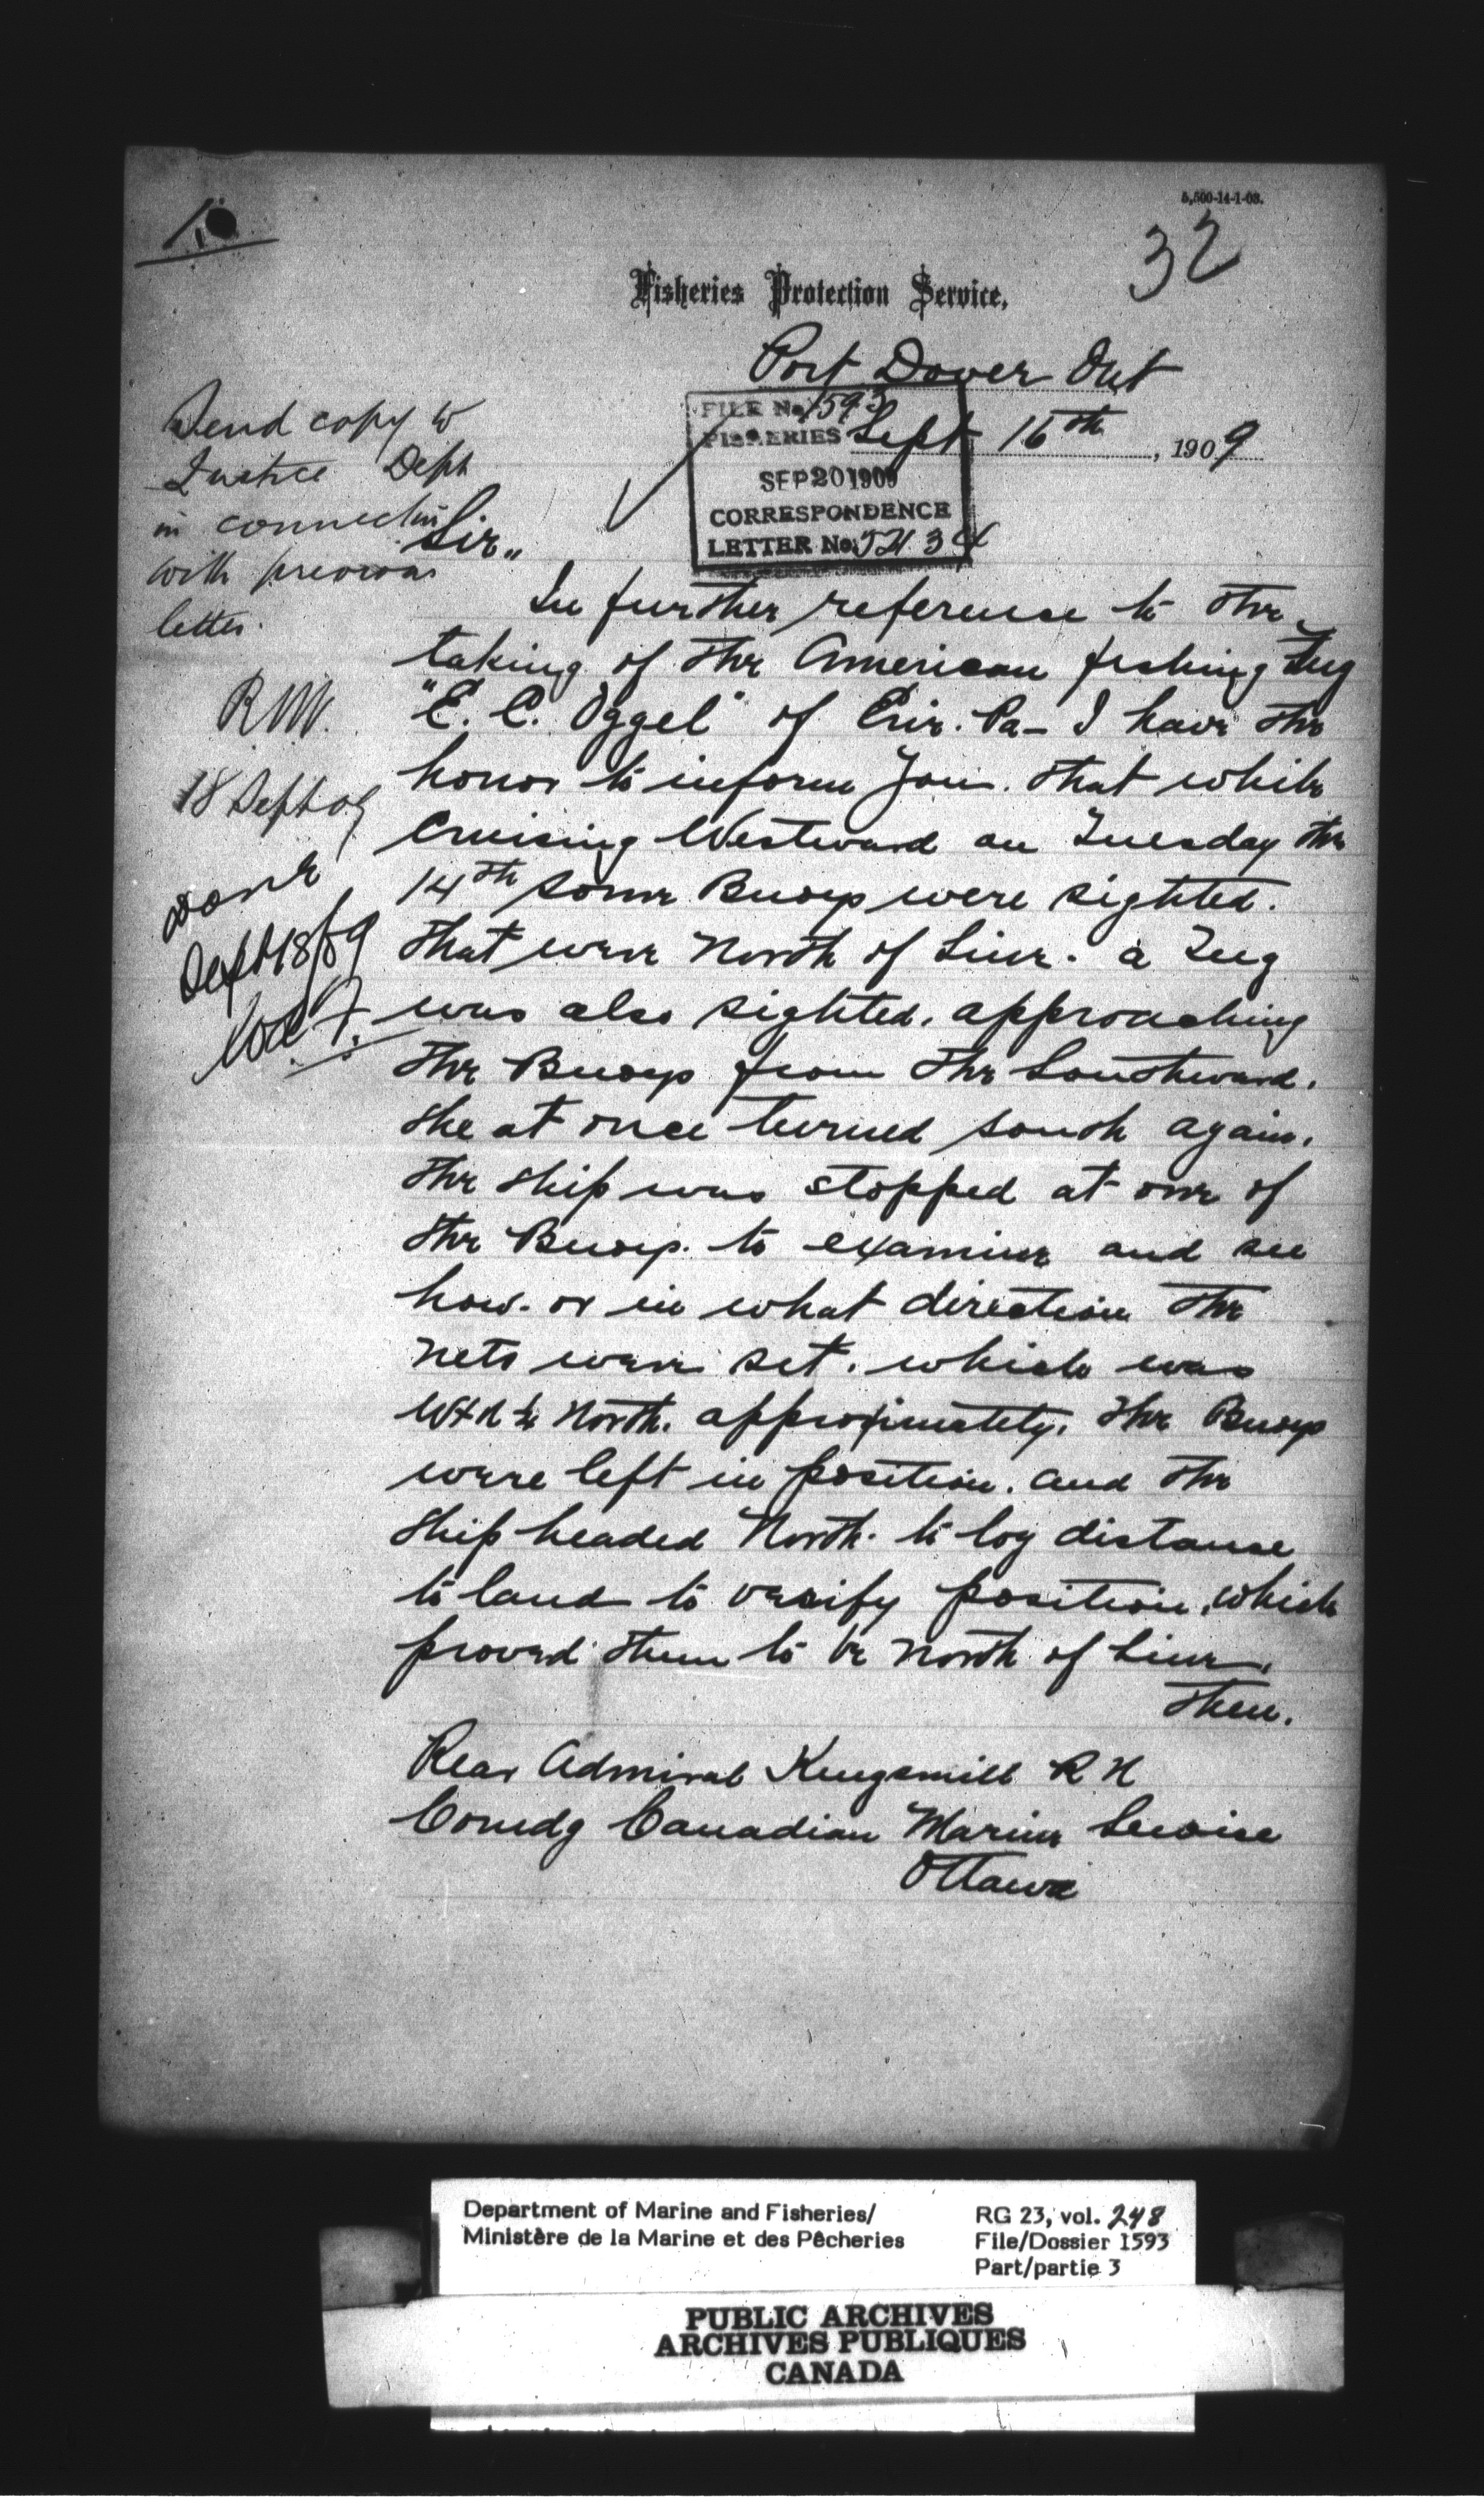 5,500-14-1-08.
1.
32
Fisheries Protection Service.
Port Dover Ont
Sept 16th, 1909
FILE No. 1593
FISHERIES
SEP 20 1909
CORRESPONDENCE
LETTER No.
Send copy to
Justice Dept
in connection
with previous
letter.
18 Sept 09
Done
Sept 18/09
Sir,,
In further reference to the
taking of the American fishing Tug
"E. C. Oggel" of Erie. Pa- I have the
honor to inform You. that while
Cruising Westward on Tuesday the
14th some Buoys were sighted.
that were North of Line. a Tug
was also sighted, approaching
the Buoys from the Southward.
She at once turned south again.
the ship was stopped at one of
the Buoys. to examine and see
how. or in what direction the
nets were set. which was
North. approximately. The Buoys
were left in position. and the
ship headed North. to log distance
to land to verify position, which
proved them to be north of Line.
then.
Rear Admiral Kingsmill R N
Comdg Canadian Marine Service
Ottawa
Department of Marine and Fisheries/
Ministère de la Marine et des Pêcheries
RG 23, vol. 248
File/Dossier 1593
Part/partie 3
PUBLIC ARCHIVES
ARCHIVES PUBLIQUES
CANADA